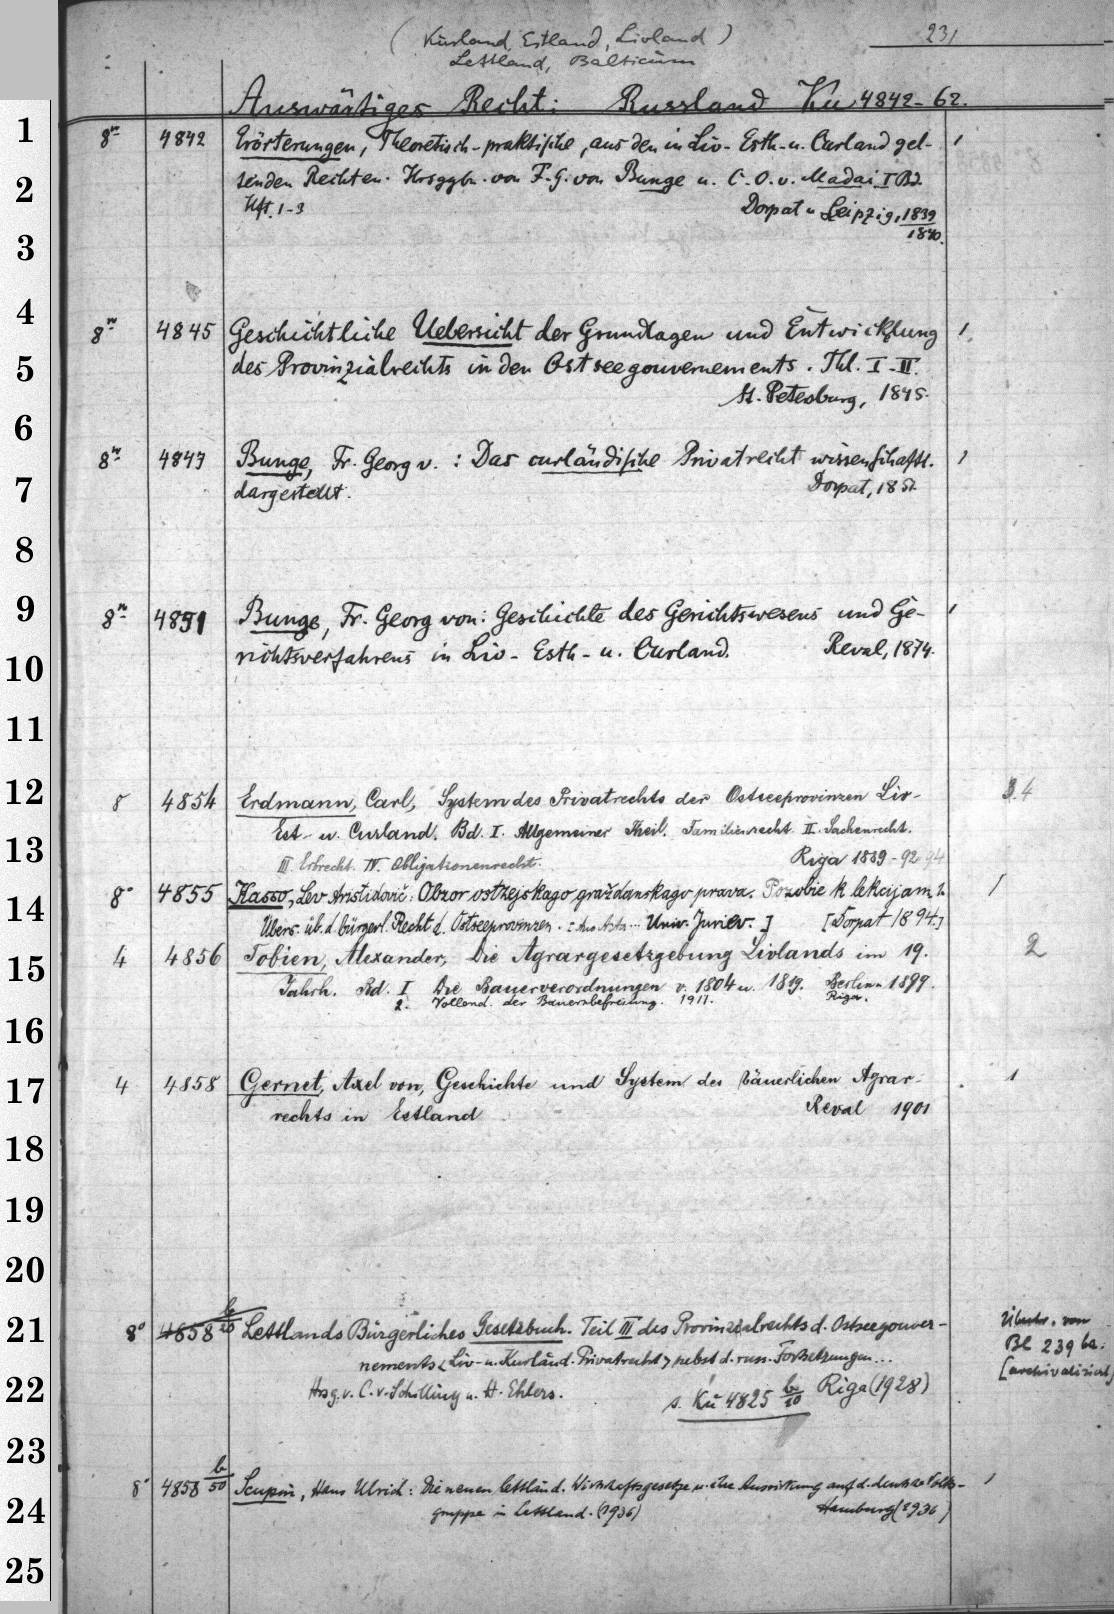 (Kurland, Estland, Livland) 231
Lettland, Balticum
Auswärtiges Recht: Russland Ku 4842-62.
1 8º 4842 Erörterungen, Theoretisch-praktische, aus den in Liv- Esth- u. Curland gel-
2 tenden Rechten. Hrsggbn. von F. G. von Bunge u. C. O. v. Madai. I Bd.
Hft. 1-3 Dorpat u. Leipzig, 1839
3 1840.
4 8º 4845 Geschichtliche Uebersicht der Grundlagen und Entwicklung
5 des Provinzialrechts in den Ostseegouvernements. Thl. I-III.
6 St. Petesburg, 1845.
8º 4847 Bunge, Fr. Georg v. : Das curländische Privatrecht wissenschaftl.
7 dargestellt. Dorpat, 1851
8
9 8º 4851 Bunge, Fr. Georg von: Geschichte des Gerichtswesens und Ge-
10 richtsverfahrens in Liv- Esth- u. Curland. Reval, 1874.
11
12 8 4854 Erdmann, Carl, System des Privatrechts der Ostseeprovinzen Liv- 3.4
Est- u. Curland. Bd. I. Allgemeiner Theil. Familienrecht II. Sachenrecht.
13 III Erbrecht. IV. Obligationenrecht. Riga 1889-92 94
14 8º 4855 Kasso, Lev Aristidovič: Obzor ostzejskago graždanskago prava. Posobie k lekcijam
Übers. üb. d. bürgerl. Recht d. Ostseeprovinzen. Univ. Juriev.] [Dorpat 1894.]
15 4 4856 Tobien, Alexander, Die Agrargesetzgebung Livlands im 19. 2
Jahrh. Bd. I Die Bauerverordnungen v. 1804 u. 1819. Berlin 1899.
2. Vollend. der Bauernbefreiung. 1911. Riga.
16
17 4 4858 Gernet, Axel von, Geschichte und System des bäuerlichen Agrar- 1
rechts in Estland Reval 1901
18
19
20
21 8º 4858 b/20 Lettlands Bürgerliches Gesetzbuch. Teil III des Provinzialrechts d. Ostseegouver- Übertr. von
nements <Liv- u. Kurländ. Privatrecht> nebst d. russ. Fortsetzungen... Bl 239
22 Hrsg. v. C. v. Schilling u. H. Ehlers. s. Ku 4825 b/20 Riga (1928) [archivalisiert]
23
8º 4858 b/50 Scupin, Hans Ulrich: Die neuen lettländ. Wirtschaftsgesetze u. ihre Auswirkung auf d. deutsche Volks-
24 gruppe in Lettland. (1936) Hamburg (1936)
25